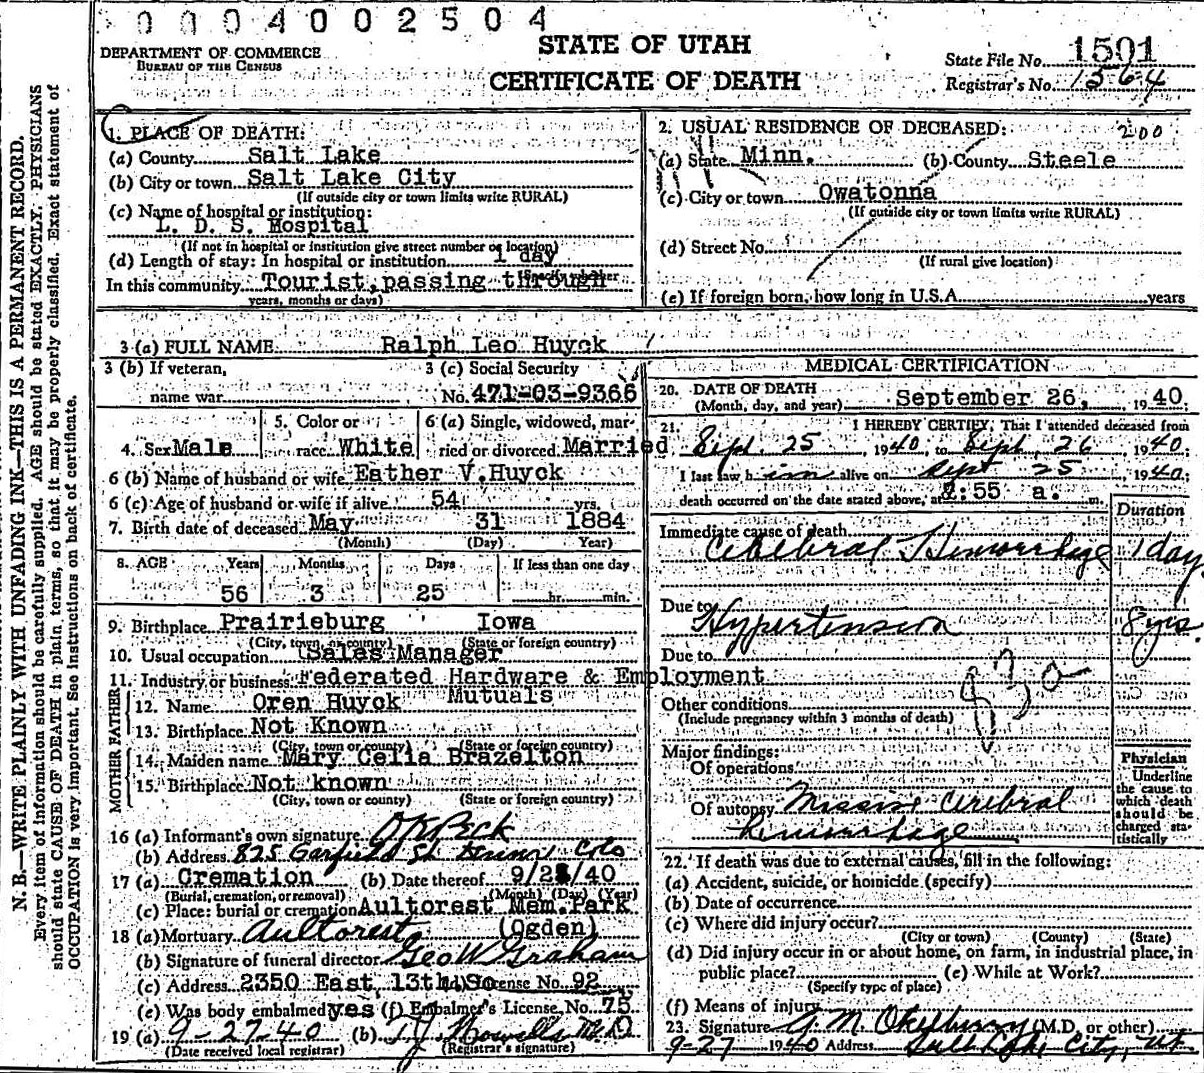 0004002504
DEPARTMENT OF COMMERCE
BUREAU OF THE CENSUS
STATE OF UTAH
CERTIFICATE OF DEATH
State File No. 1591
Registrar's No. 1564
N. B.—WRITE PLAINLY WITH UNFADING INK—THIS IS A PERMANENT RECORD.
Every item of information should be carefully supplied. AGE should be stated EXACTLY. PHYSICIANS
should state CAUSE OF DEATH in plain terms, so that it may be properly classified. Exact statement of
OCCUPATION is very important. See instructions on back of certificate.
1. PLACE OF DEATH:
(a) County Salt Lake
(b) City or town Salt Lake City
(If outside city or town limits write RURAL)
(c) Name of hospital or institution:
L. D. S. Hospital
(If not in hospital or institution give street number or location)
(d) Length of stay: In hospital or institution 1 day
(Specify whether
In this community Tourist, passing through
years, months or days)
2. USUAL RESIDENCE OF DECEASED: 200
(a) State Minn. (b) County Steele
(c) City or town Owatonna
(If outside city or town limits write RURAL)
(d) Street No.
(If rural give location)
(e) If foreign born, how long in U.S.A. years
3 (a) FULL NAME Ralph Leo Huyck
3 (b) If veteran,
name war
3 (c) Social Security
No. 471-03-9366
4. Sex Male
5. Color or
race White
6 (a) Single, widowed, mar-
ried or divorced Married
6 (b) Name of husband or wife Eather V. Huyck
6 (c) Age of husband or wife if alive 54 yrs.
7. Birth date of deceased May 31 1884
(Month) (Day) Year)
8. AGE Years Months Days If less than one day
56 3 25 hr. min.
9. Birthplace Prairieburg Iowa
(City, town, or county) (State or foreign country)
10. Usual occupation Sales Manager
11. Industry or business Federated Hardware & Employment
Mutuals
FATHER
12. Name Oren Huyck
13. Birthplace Not Known
(City, town or county) (State or foreign country)
MOTHER
14. Maiden name Mary Celia Brazelton
15. Birthplace Not known
(City, town or county) (State or foreign country)
16 (a) Informant's own signature Peck
(b) Address 825 Garfield St. Colo
17 (a) Cremation (b) Date thereof 9/2 /40
(Burial, cremation, or removal) (Month) (Day) (Year)
(c) Place: burial or cremation Aultorest Mem. Park
(Ogden)
18 (a) Mortuary Aultorest
(b) Signature of funeral director Geo W Graham
(c) Address 2350 East 13th So License No. 92
(e) Was body embalmed yes (f) Embalmer's License No. 75
19 (a) 9-27-40 (b) T. J. Howells M.D.
(Date received local registrar) (Registrar's signature)
MEDICAL CERTIFICATION
20. DATE OF DEATH
(Month, day, and year) September 26, 1940.
21. I HEREBY CERTIFY, That I attended deceased from
Sept. 25 1940, to Sept. 26, 1940;
I last saw him alive on Sept 25 1940;
death occurred on the date stated above, at 2:55 a. m.
Duration
Immediate cause of death
Cerebral Hemorrhage 1 day
Due to
Hypertension 8 yrs
Due to
83a
Other conditions
(Include pregnancy within 3 months of death)
Major findings:
Of operations
Of autopsy Massive Cerebral
hemorrhage
Physician
Underline
the cause to
which death
should be
charged sta-
tistically
22. If death was due to external causes, fill in the following:
(a) Accident, suicide, or homicide (specify)
(b) Date of occurrence
(c) Where did injury occur?
(City or town) (County) (State)
(d) Did injury occur in or about home, on farm, in industrial place, in
public place? (e) While at Work?
(Specify type of place)
(f) Means of injury
23. Signature A. M. Okelberry (M.D. or other)
9-27 1940 Address Salt Lake City, Ut.